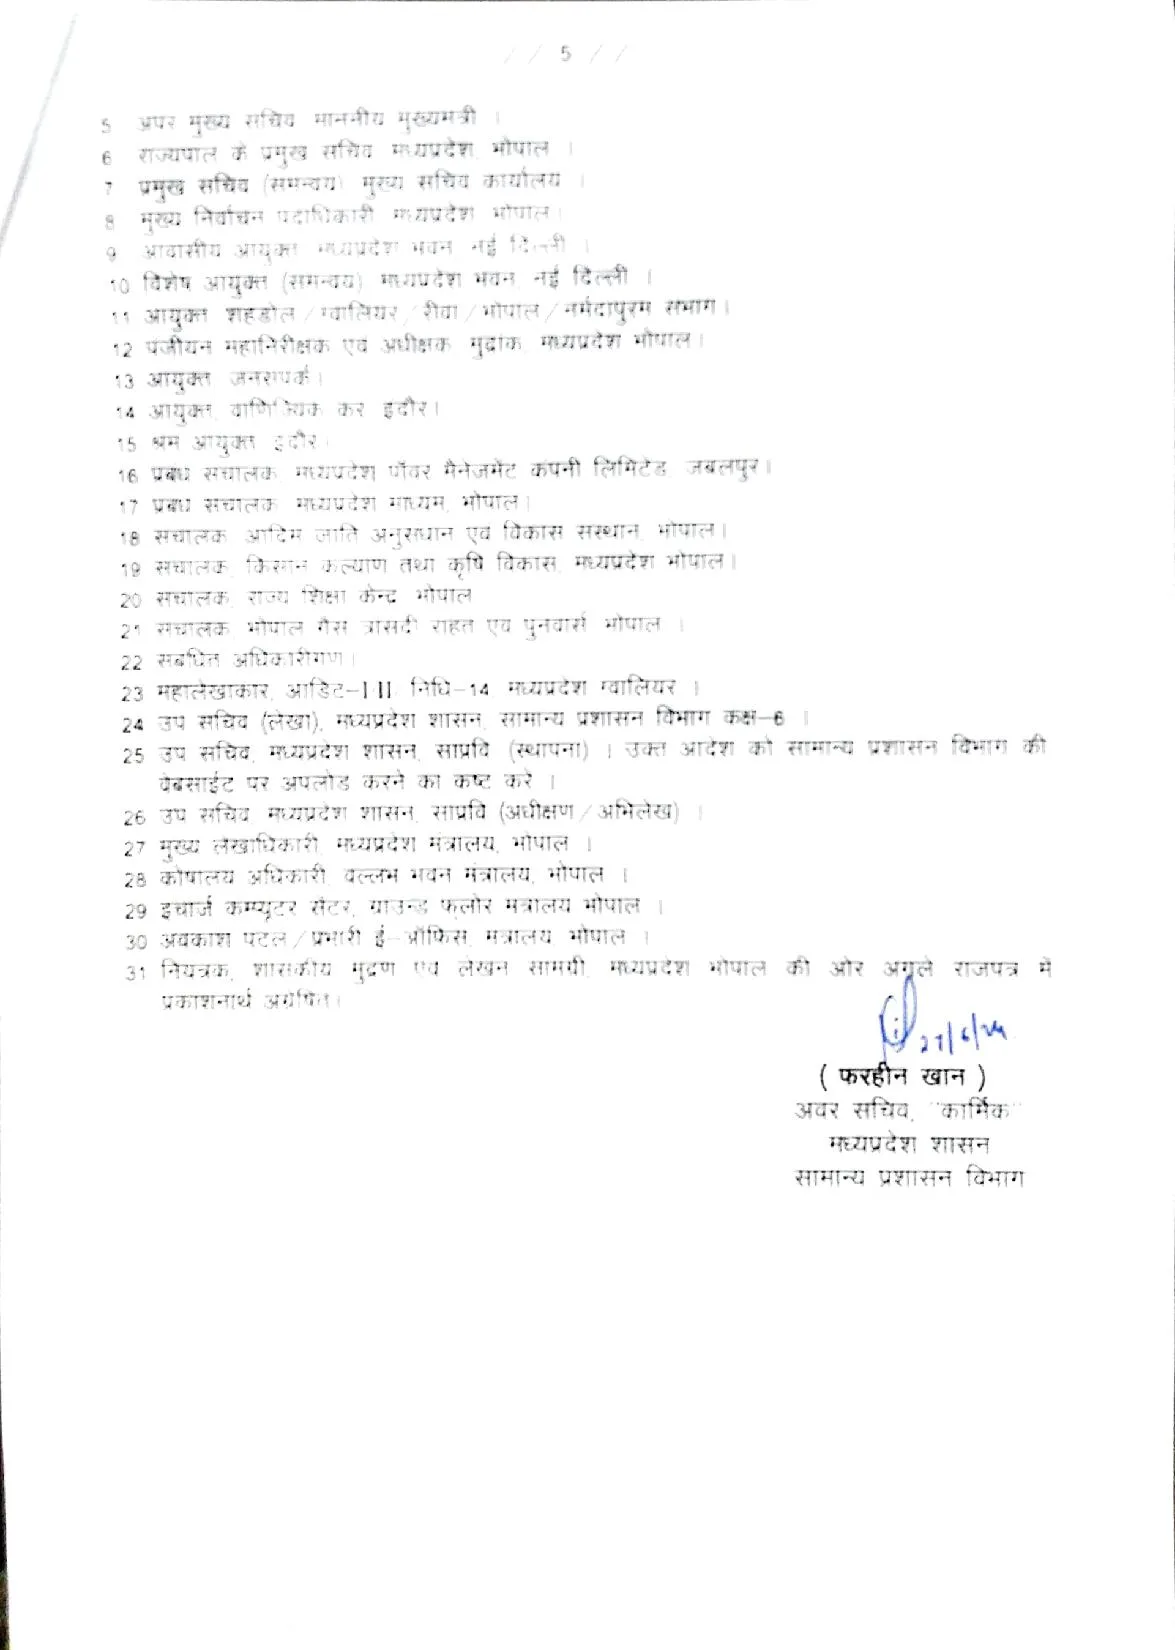 // 5 //
5 अपर मुख्य सचिव माननीय मुख्यमंत्री ।
6 राज्यपाल के प्रमुख सचिव मध्यप्रदेश, भोपाल ।
7 प्रमुख सचिव (समन्वय) मुख्य सचिव कार्यालय ।
8 मुख्य निर्वाचन पदाधिकारी मध्यप्रदेश भोपाल।
9 आवासीय आयुक्त मध्यप्रदेश भवन नई दिल्ली ।
10 विशेष आयुक्त (समन्वय) मध्यप्रदेश भवन, नई दिल्ली ।
11 आयुक्त शहडोल/ग्वालियर/रीवा/भोपाल/नर्मदापुरम संभाग।
12 पंजीयन महानिरीक्षक एवं अधीक्षक मुद्रांक मध्यप्रदेश भोपाल।
13 आयुक्त जनसंपर्क।
14 आयुक्त, वाणिज्यिक कर इंदौर।
15 श्रम आयुक्त इंदौर।
16 प्रबंध संचालक, मध्यप्रदेश पॉवर मैनेजमेंट कंपनी लिमिटेड, जबलपुर।
17 प्रबंध संचालक मध्यप्रदेश माध्यम, भोपाल।
18 संचालक, आदिम जाति अनुसंधान एवं विकास संस्थान, भोपाल।
19 संचालक, किसान कल्याण तथा कृषि विकास, मध्यप्रदेश भोपाल।
20 संचालक, राज्य शिक्षा केन्द्र भोपाल
21 संचालक, भोपाल गैस त्रासदी राहत एवं पुनर्वास भोपाल ।
22 संबंधित अधिकारीगण।
23 महालेखाकार, आडिट-I/II, निधि-14, मध्यप्रदेश ग्वालियर ।
24 उप सचिव (लेखा), मध्यप्रदेश शासन, सामान्य प्रशासन विभाग कक्ष-6 ।
25 उप सचिव, मध्यप्रदेश शासन, साप्रवि (स्थापना) । उक्त आदेश को सामान्य प्रशासन विभाग की
वेबसाईट पर अपलोड करने का कष्ट करें ।
26 उप सचिव, मध्यप्रदेश शासन, साप्रवि (अधीक्षण/अभिलेख) ।
27 मुख्य लेखाधिकारी, मध्यप्रदेश मंत्रालय, भोपाल ।
28 कोषालय अधिकारी, वल्लभ भवन मंत्रालय, भोपाल ।
29 इंचार्ज कम्प्यूटर सेंटर, ग्राउन्ड फ्लोर मंत्रालय भोपाल ।
30 अवकाश पटल/प्रभारी ई-ऑफिस, मंत्रालय भोपाल ।
31 नियंत्रक, शासकीय मुद्रण एवं लेखन सामग्री, मध्यप्रदेश भोपाल की ओर अगले राजपत्र में
प्रकाशनार्थ अग्रेषित।
27/6/24
( फरहीन खान )
अवर सचिव, "कार्मिक"
मध्यप्रदेश शासन
सामान्य प्रशासन विभाग